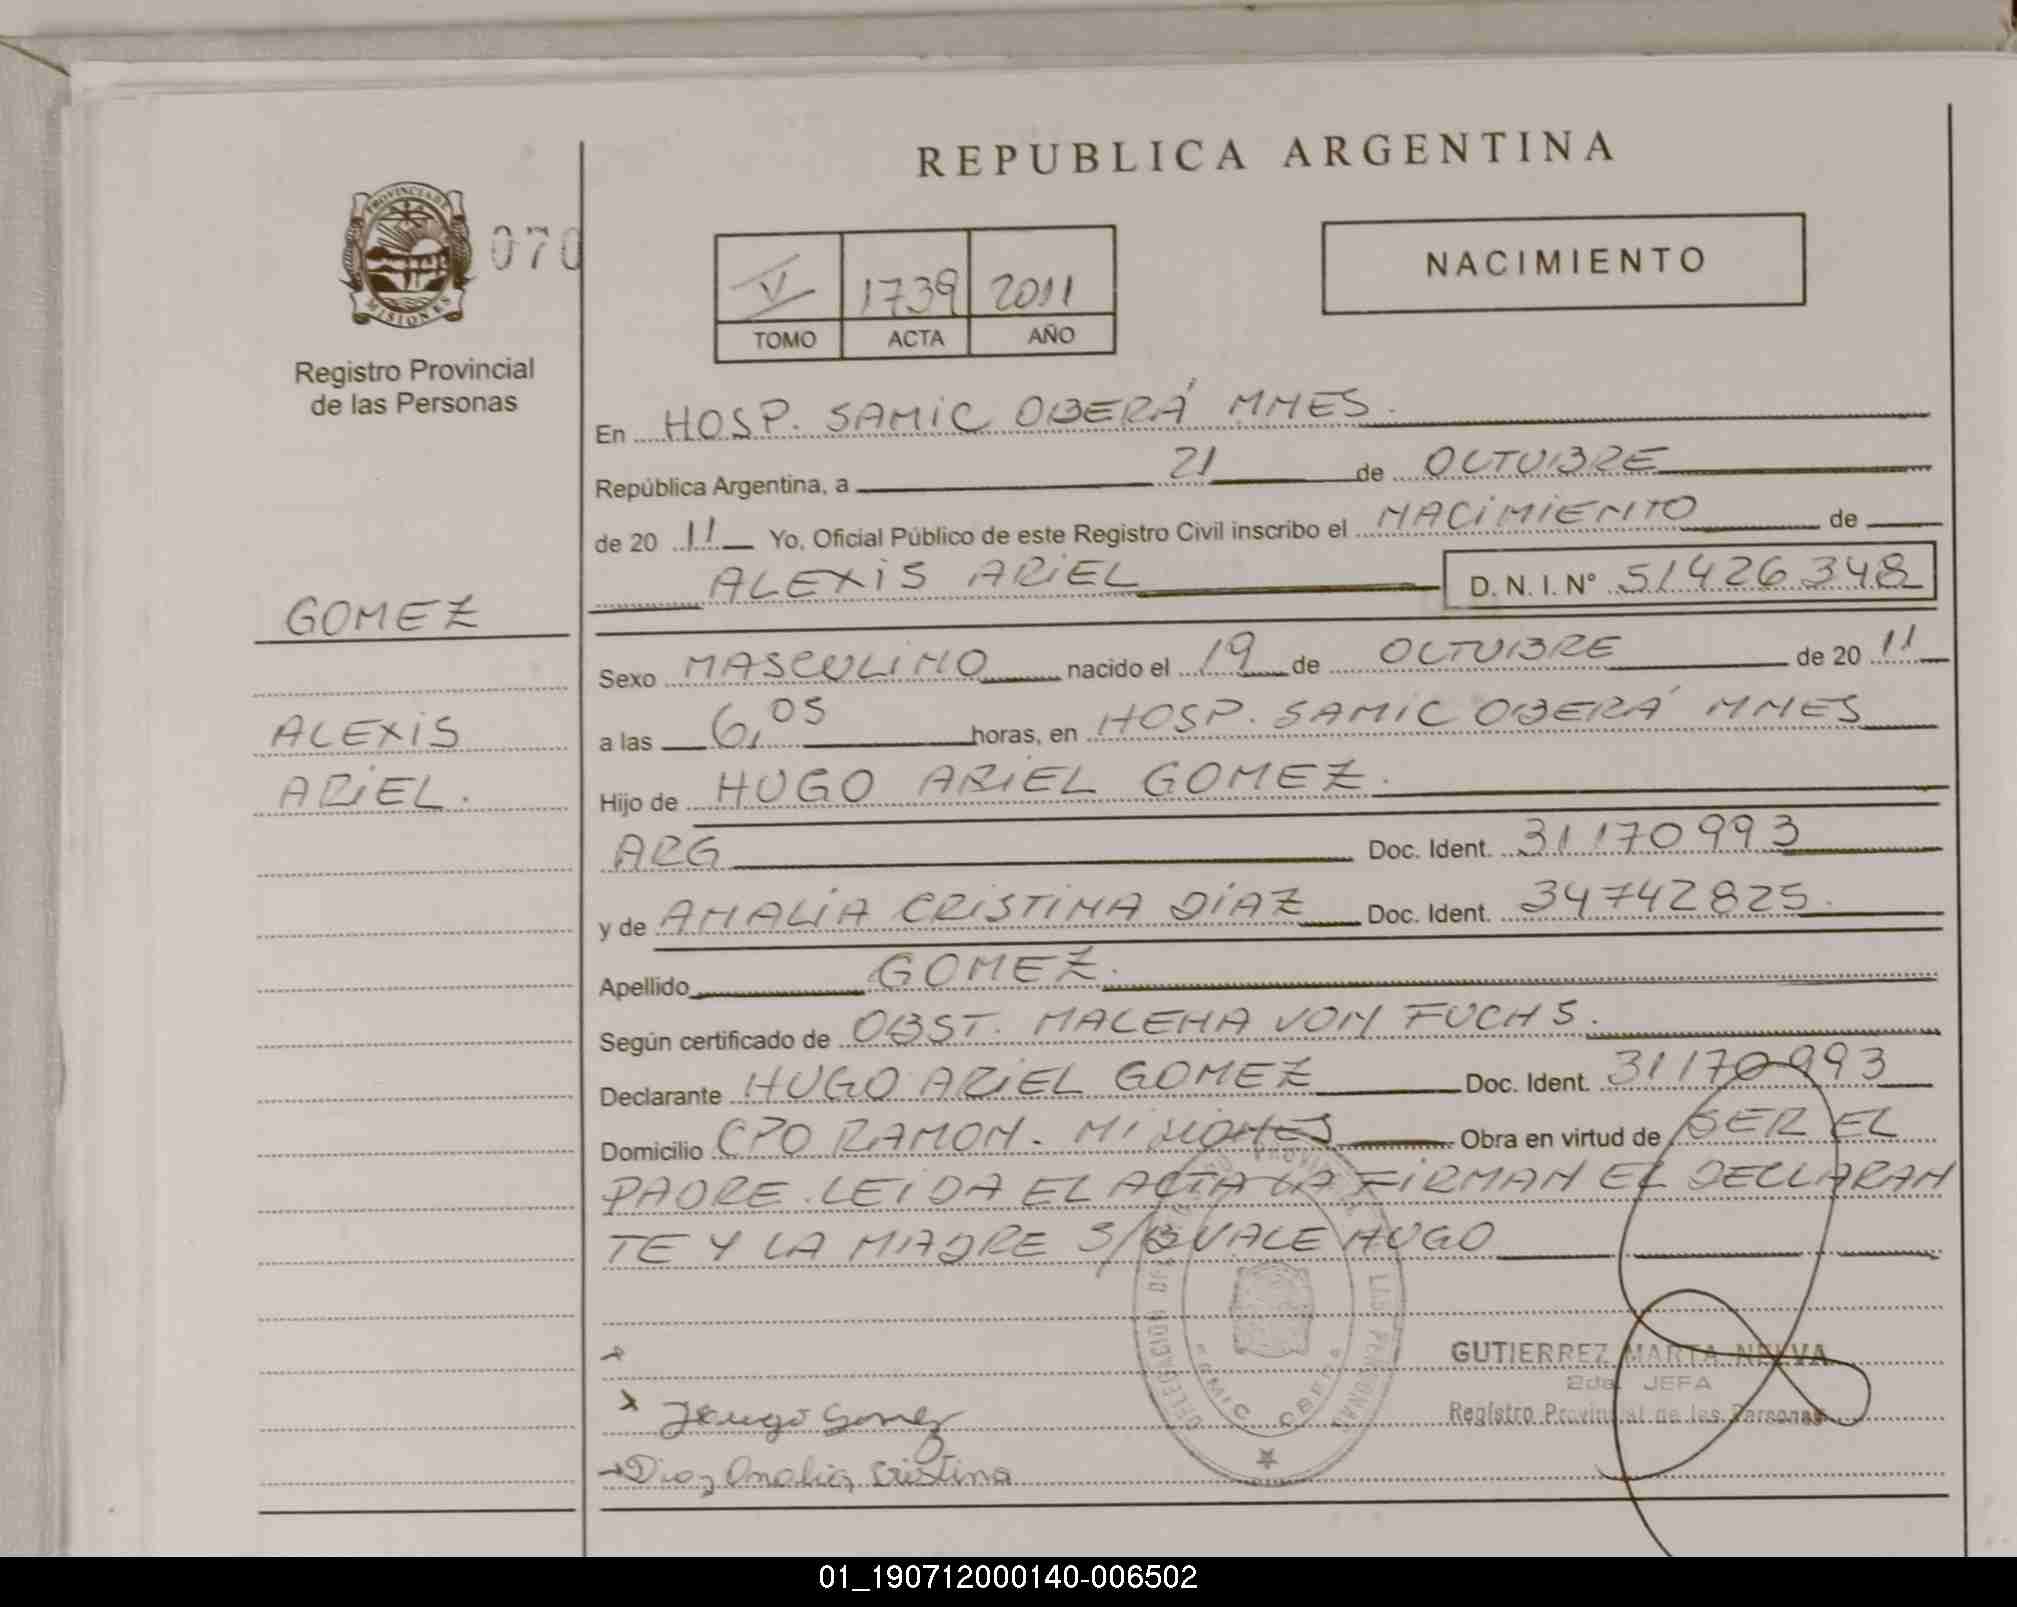 REPUBLICA ARGENTINA
PROVINCIA DE
MISIONES
070
NACIMIENTO
V 1739 2011
TOMO ACTA AÑO
Registro Provincial
de las Personas
En HOSP. SAMIC OBERÁ MNES.
República Argentina, a 21 de OCTUBRE
de 20 11 Yo, Oficial Público de este Registro Civil inscribo el NACIMIENTO de
ALEXIS ARIEL D. N. I. N° 51426348
GOMEZ
Sexo MASCULINO nacido el 19 de OCTUBRE de 20 11
ALEXIS
a las 6,05 horas, en HOSP. SAMIC OBERÁ MNES
ARIEL.
Hijo de HUGO ARIEL GOMEZ.
ARG Doc. Ident. 31170993
y de AMALIA CRISTINA DIAZ Doc. Ident. 34742825.
Apellido GOMEZ.
Según certificado de OBST. MALENA VON FUCHS.
Declarante HUGO ARIEL GOMEZ Doc. Ident. 31170993
Domicilio CPO RAMON. MISIONES Obra en virtud de SER EL
PADRE. LEIDA EL ACTA LA FIRMAN EL DECLARAN
TE Y LA MADRE S/B VALE HUGO
GUTIERREZ MARTA NELVA
2da. JEFA
Registro Provincial de las Personas
Hugo Gomez
Diaz Amalia Cristina
01_190712000140-006502